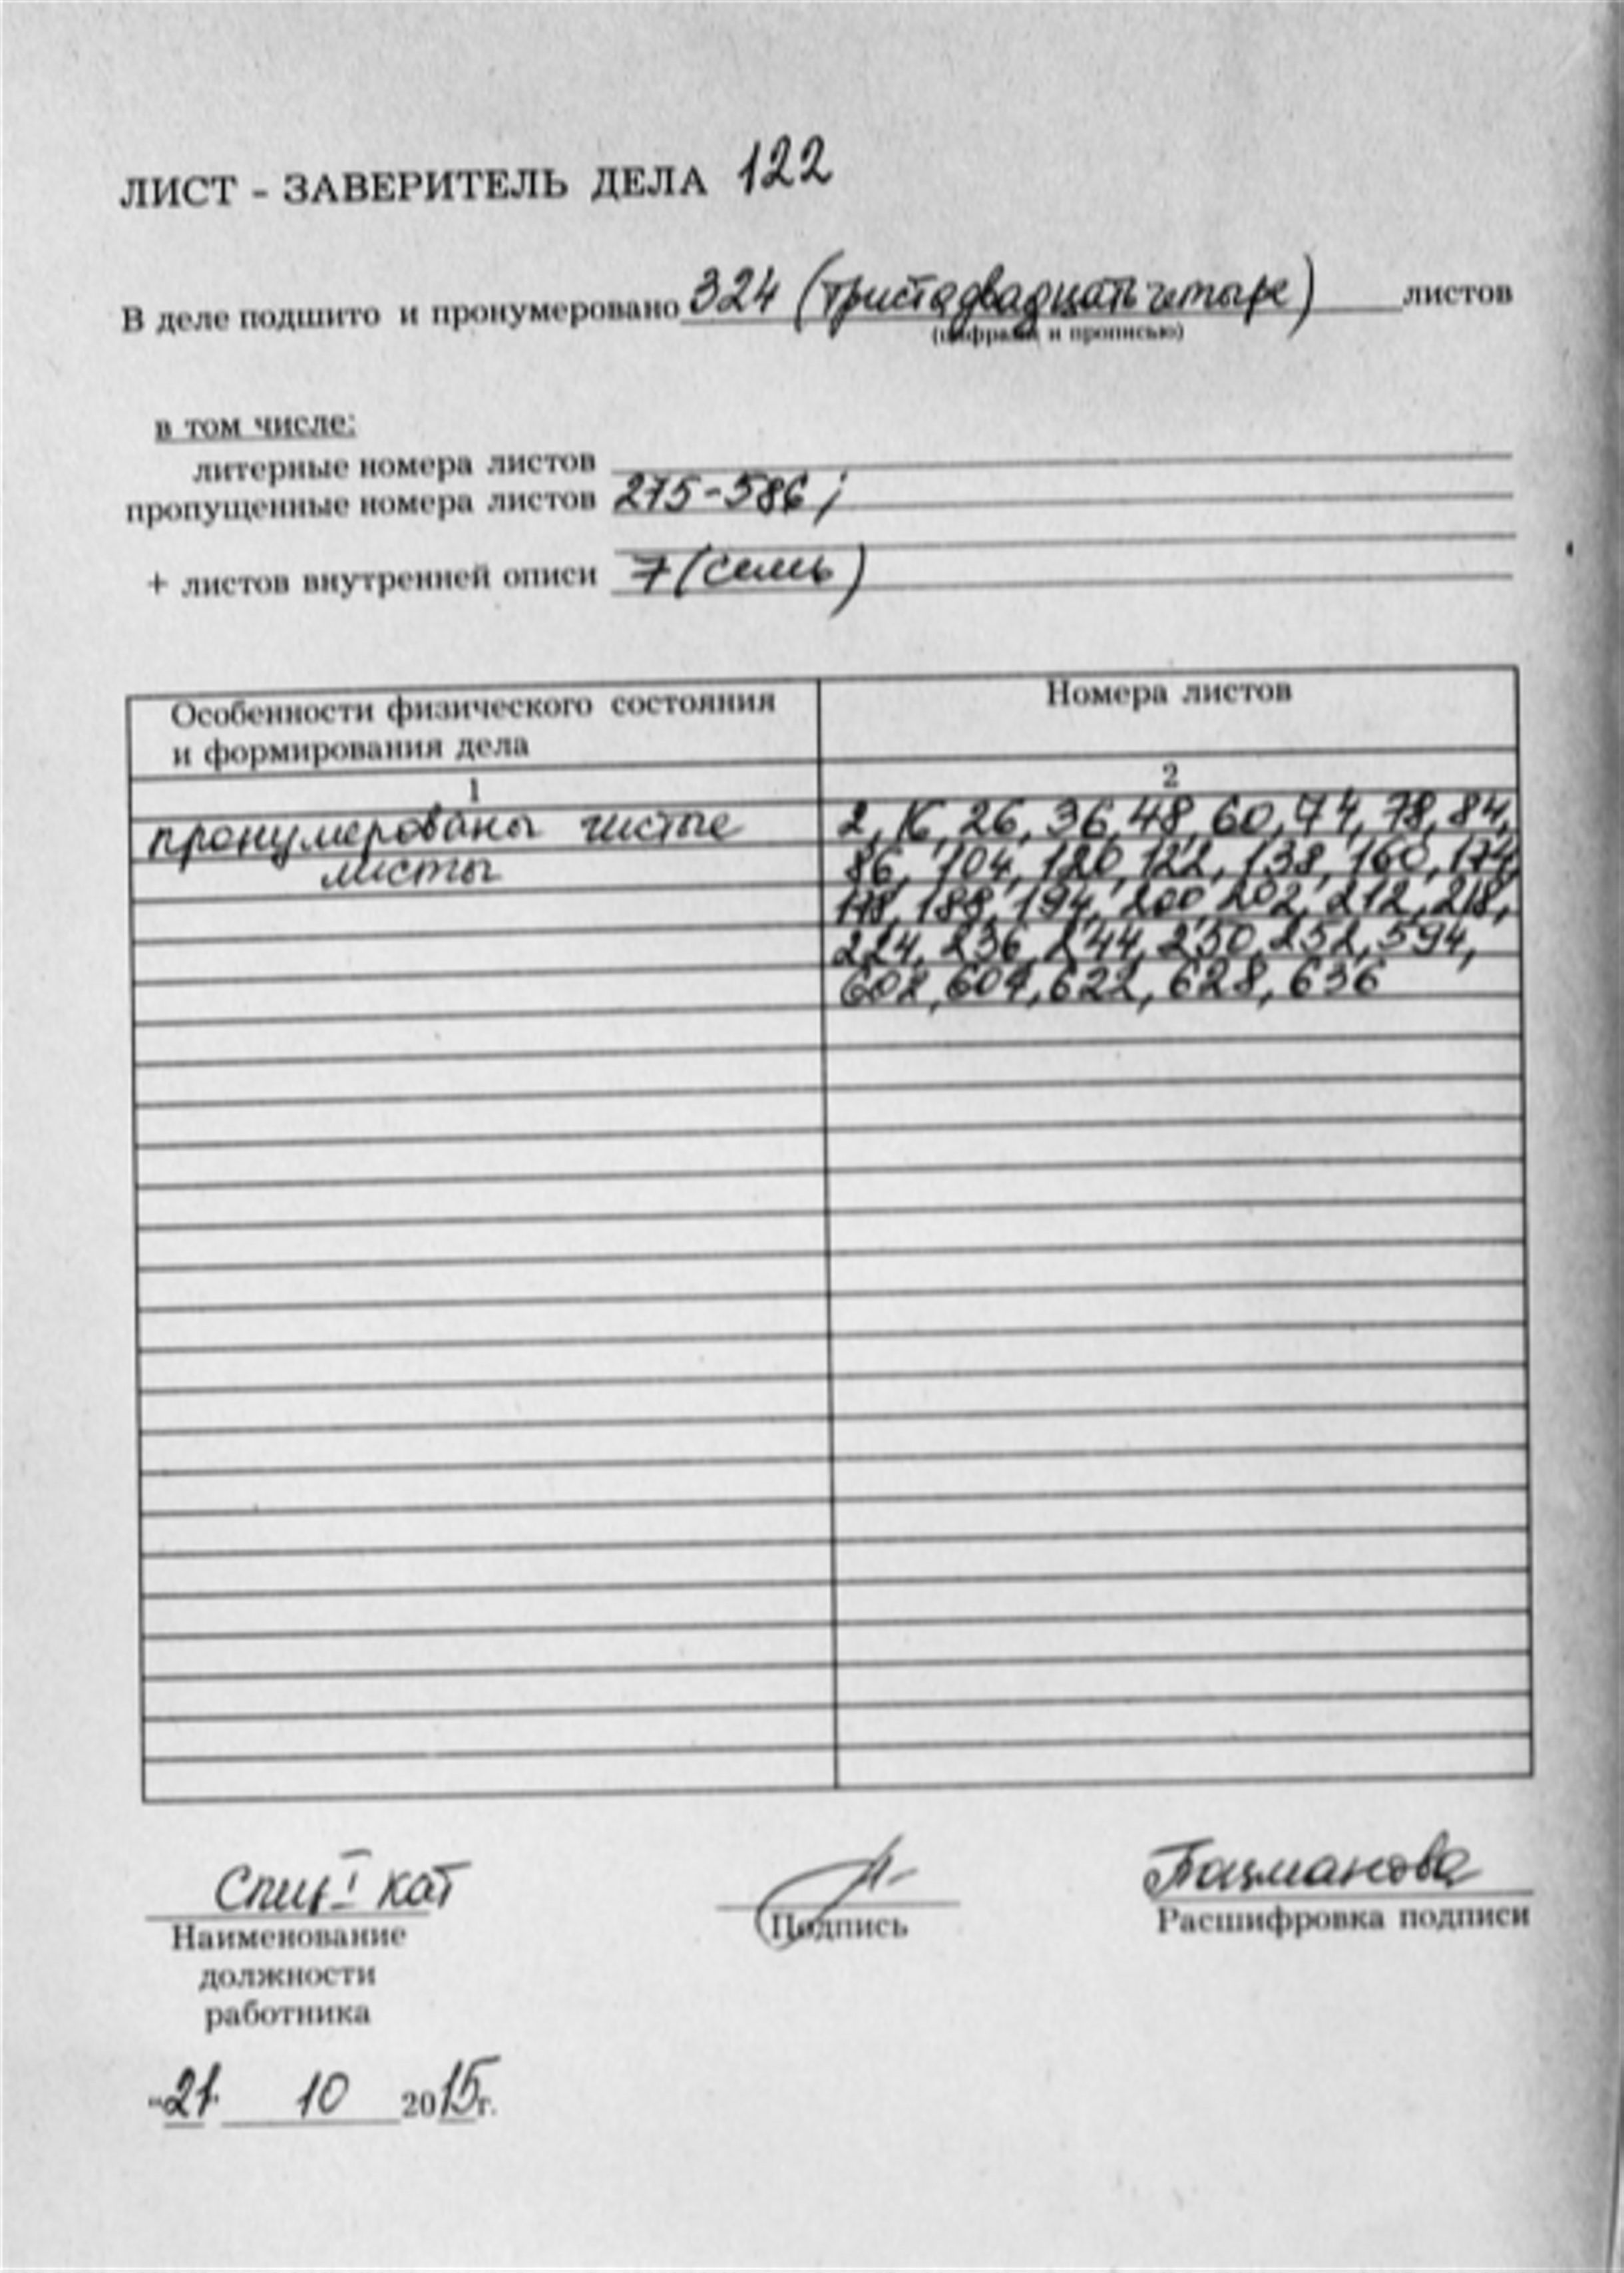 ЛИСТ - ЗАВЕРИТЕЛЬ ДЕЛА 122
В деле подшито и пронумеровано 324 (триста двадцать четыре) листов
(цифрами и прописью)
в том числе:
литерные номера листов
пропущенные номера листов 275-586;
+ листов внутренней описи 7 (семь)
Особенности физического состояния Номера листов
и формирования дела
1 2
пронумерованы чистые 2, 16, 26, 36, 48, 60, 74, 78, 84,
листы 86, 104, 120, 122, 138, 160, 174,
178, 188, 194, 200, 202, 212, 218,
224, 236, 244, 250, 252, 594,
602, 604, 622, 628, 636
Спец I кат
Наименование Подпись Расшифровка подписи
должности
работника
"21" 10 2015г.